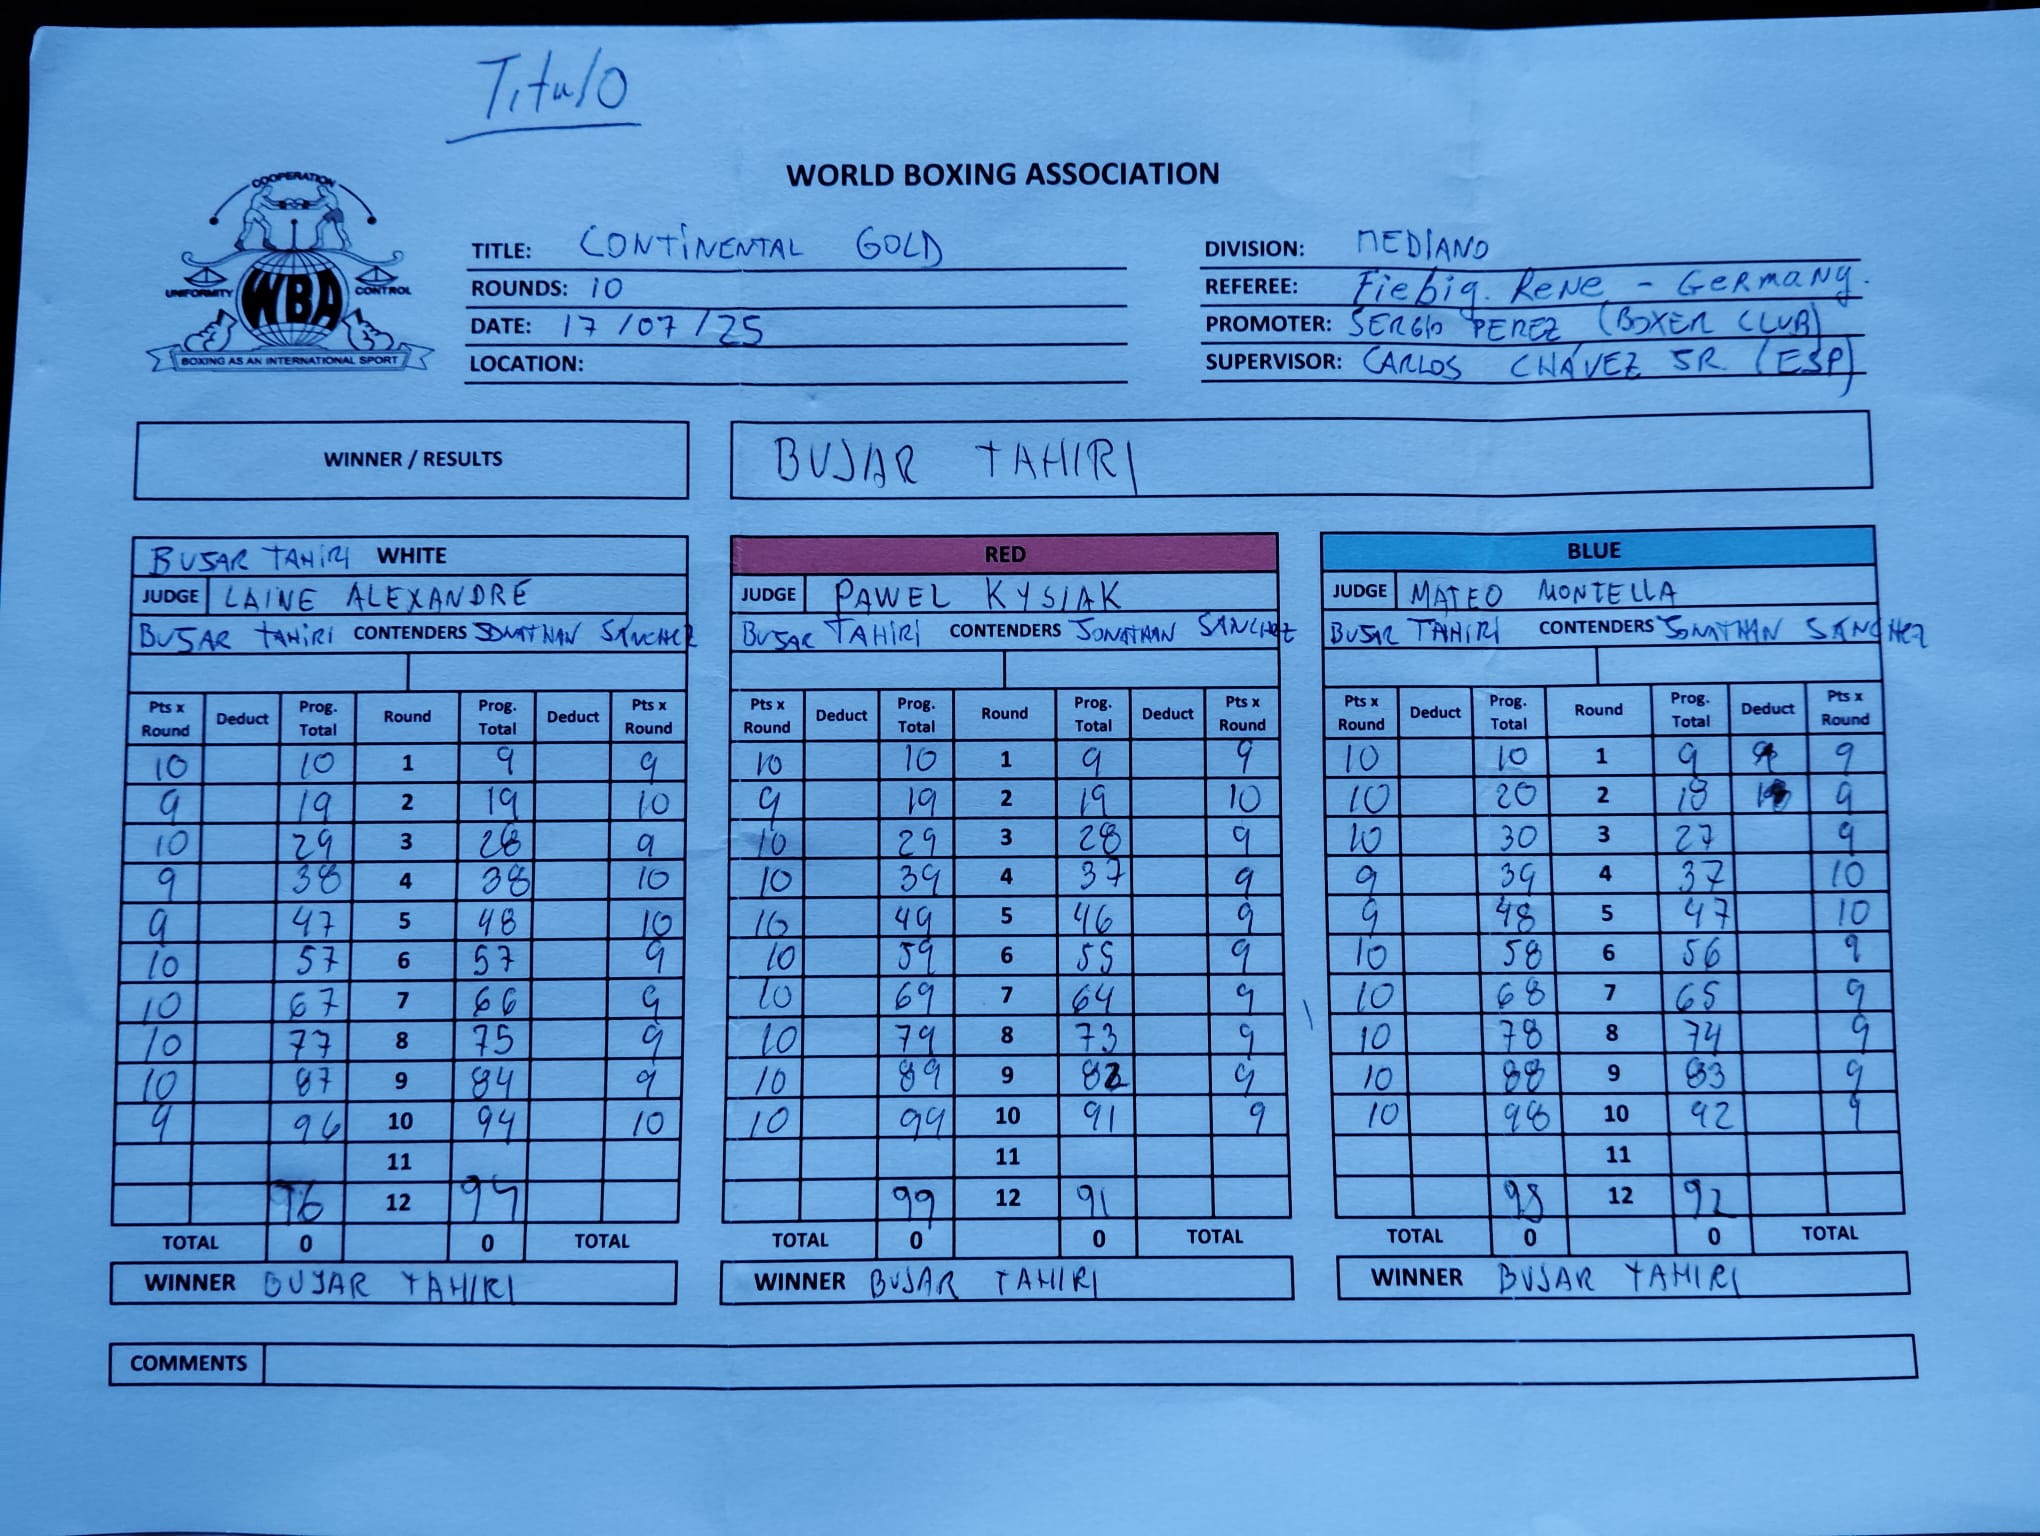 Titulo
WORLD BOXING ASSOCIATION
COOPERATION
UNIFORMITY WBA CONTROL
BOXING AS AN INTERNATIONAL SPORT
TITLE: CONTINENTAL GOLD
ROUNDS: 10
DATE: 17/07/25
LOCATION:
DIVISION: MEDIANO
REFEREE: Fiebig. Rene - Germany.
PROMOTER: SERGIO PEREZ (BOXER CLUB)
SUPERVISOR: CARLOS CHÁVEZ SR. (ESP)
WINNER / RESULTS
BUJAR TAHIRI
BUJAR TAHIRI WHITE
JUDGE LAINE ALEXANDRE
BUJAR TAHIRI CONTENDERS JONATHAN SANCHEZ
Pts x Round Deduct Prog. Total Round Prog. Total Deduct Pts x Round
10 10 1 9 9
9 19 2 19 10
10 29 3 28 9
9 38 4 38 10
9 47 5 48 10
10 57 6 57 9
10 67 7 66 9
10 77 8 75 9
10 87 9 84 9
9 96 10 94 10
11
96 12 94
TOTAL 0 0 TOTAL
WINNER BUJAR TAHIRI
RED
JUDGE PAWEL KYSIAK
BUJAR TAHIRI CONTENDERS JONATHAN SANCHEZ
Pts x Round Deduct Prog. Total Round Prog. Total Deduct Pts x Round
10 10 1 9 9
9 19 2 19 10
10 29 3 28 9
10 39 4 37 9
10 49 5 46 9
10 59 6 55 9
10 69 7 64 9
10 79 8 73 9
10 89 9 82 9
10 99 10 91 9
11
99 12 91
TOTAL 0 0 TOTAL
WINNER BUJAR TAHIRI
BLUE
JUDGE MATEO MONTELLA
BUJAR TAHIRI CONTENDERS JONATHAN SANCHEZ
Pts x Round Deduct Prog. Total Round Prog. Total Deduct Pts x Round
10 10 1 9 9
10 20 2 18 9
10 30 3 27 9
9 39 4 37 10
9 48 5 47 10
10 58 6 56 9
10 68 7 65 9
10 78 8 74 9
10 88 9 83 9
10 98 10 92 9
11
98 12 92
TOTAL 0 0 TOTAL
WINNER BUJAR TAHIRI
COMMENTS